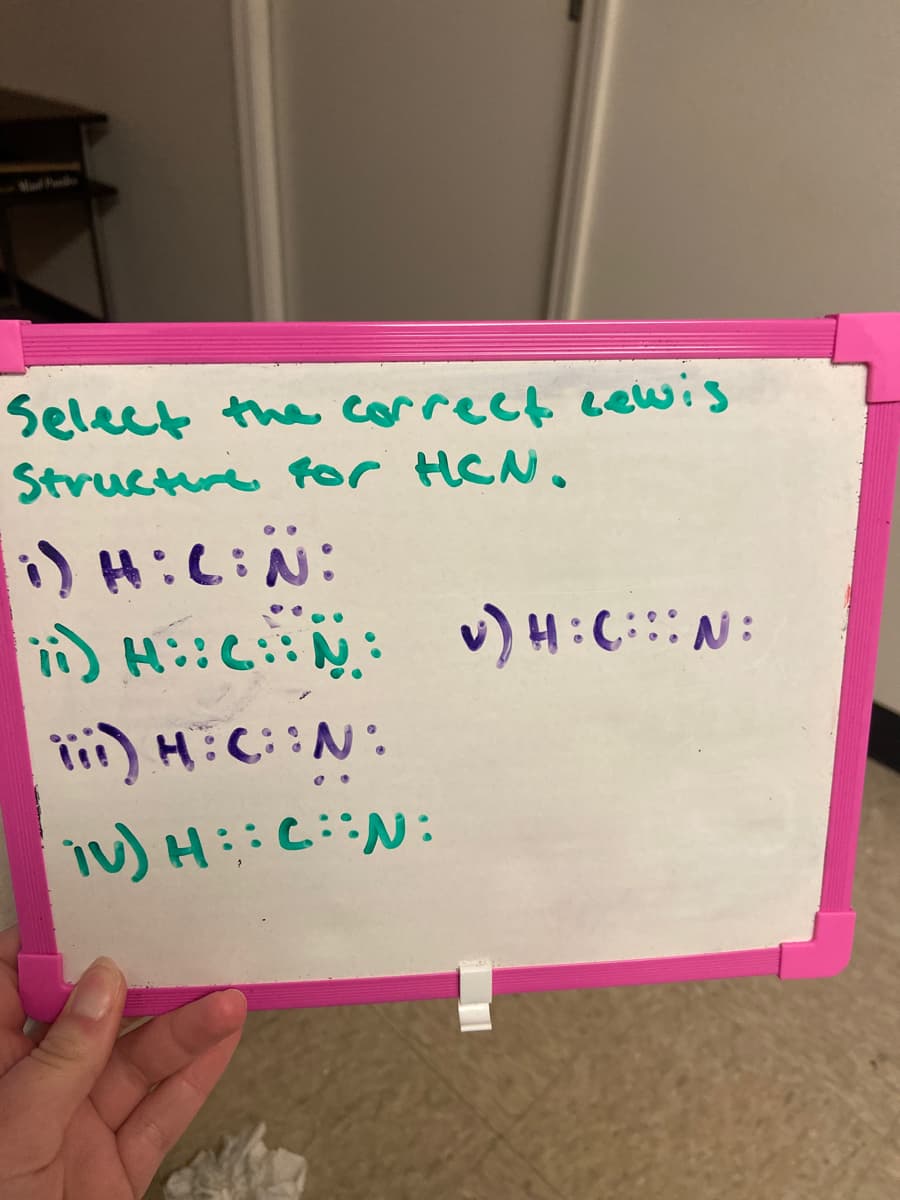 Select the correct Lewis
structure for HCN.
i) H:C:N̈:
ii) H::C::N̤̈:
v) H:C:::N:
iii) H:C::N̤:
iv) H::C::N: